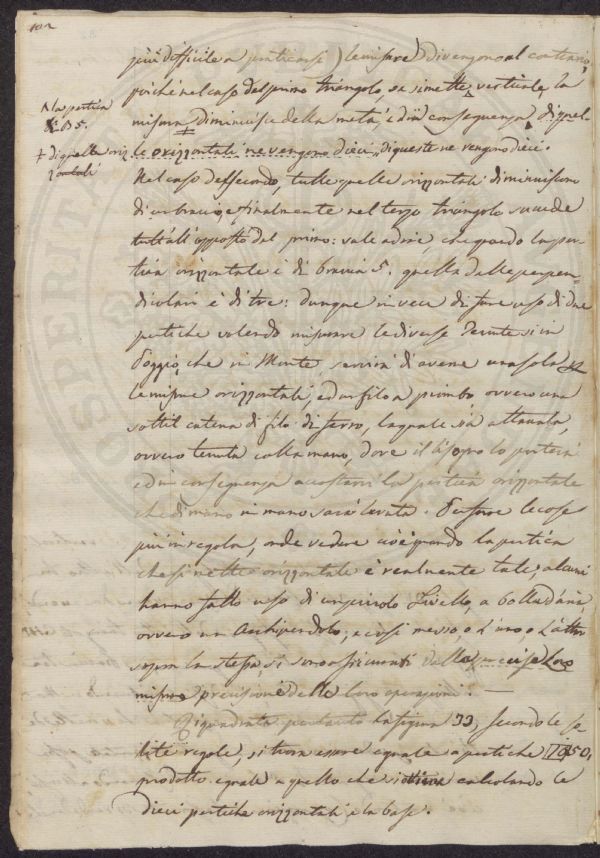 102
più difficile a praticarsi) le misure) divengono al contrario,
poiché nel caso del primo triangolo se si mette verticale la
misura diminuisce della metà, e di conseguenza di quel-
le orizzontali ne vengono dieci, di queste ne vengono dieci.
Λ la pertica
B 5.
+ di quelle oriz
zontali
Nel caso del secondo, tutte quelle orizzontali diminuiscono
di un braccio, e finalmente nel terzo triangolo succede
tutt'all'opposto del primo: vale a dire, che quando la per-
tica orizzontale è di braccia 5. quella delle perpen-
dicolari è di tre: dunque in vece di fare uso di due
pertiche volendo misurare le diverse tenute sì in
Poggio, che in Monte, servirà di averne una sola
le misure orizzontali, ed un filo a piombo ovvero una
sottil catena di filo di ferro, la quale sia attaccata,
ovvero tenuta colla mano, dove il bisogno lo porterà
ed in conseguenza accostarvi la pertica orizzontale
che di mano in mano sarà levata. Per fare le cose
più in regola, onde vedere cioè quando la pertica
che si mette orizzontale è realmente tale, alcuni
hanno fatto uso di un piccolo Livello, a bolla d'aria,
ovvero un Archipendolo, e così messo o l'uno o l'altro
sopra la stessa, si sono assicurati della precisa Loro
misura precisione delle loro operazioni. —
Riquadrata pertanto la figura 33, secondo le so-
lite regole, si trova essere eguale a pertiche 50,
prodotto eguale a quello che si calcolando le
dieci pertiche orizzontali e la base.